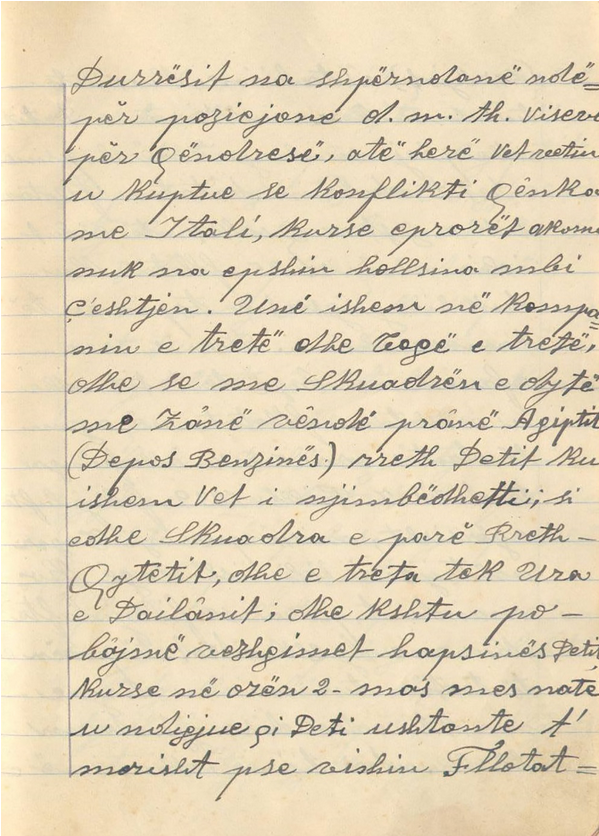 Durrësit na shpërndanë ndë=
për pozicjone d. m. th. Viseve
për Qëndresë, atë herë Vetvetiu
u Kuptue se Konflikti Qênka
me Itali, Kurse eprorët akoma
nuk na epshin hollsina mbi
Çështjen. Unë ishem në Kompa=
nin e tretë dhe Togë e tretë,
dhe se me Skuadrën e dytë
me Zânë vêndë prânë Agiptit
(Depos Benzinës) rreth Detit Ku
ishem Vet i njimbëdhetti; si
edhe Skuadra e parë Rreth-
Qytetit, dhe e treta tek Ura
e Dailânit; dhe Kshtu po-
bâjmë vezhgimet hapsinës Detit,
Kurse në orën 2- mas mes natë
u ndigjue qi Deti ushtonte t'
morisht pse vishin Fllotat=